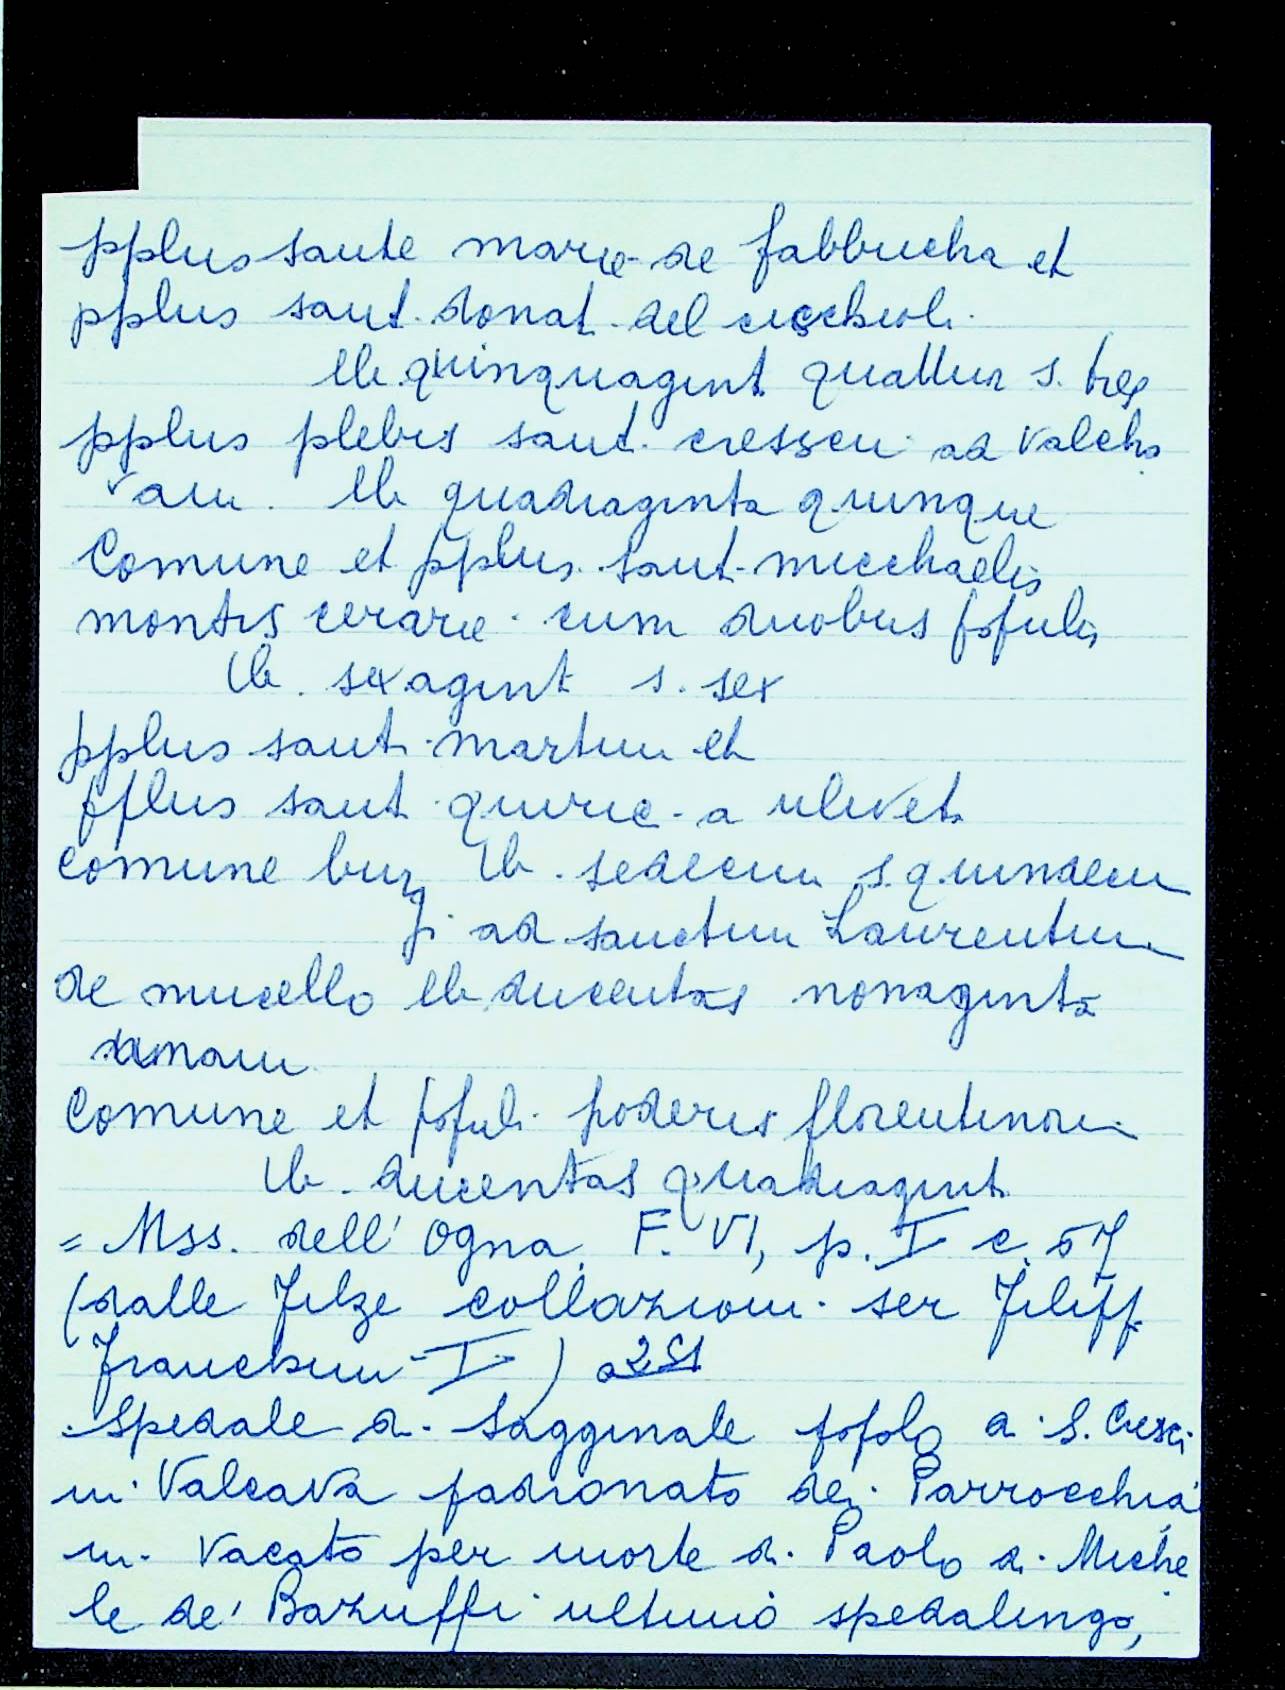 pplus sante marie de fabbricha et
pplus sant. donat. del cicchioli.
lb. quinquagint quattuor s. tres
pplus plebis sant. cresscii ad valcha
vam. lb quadraginta quinque
Comune et pplus. sant. micchaelis
montis cerarie. cum duobus popul.
lb. sexagint s. sex
pplus sant. martini et
pplus sant. quiric. a ulivet.
comune bur lb. sedecim s. quindecim
gi ad sanctum Laurentium
de mucello lb. ducentas nonaginta
unam
Comune et popul. poderis florentinor.
lb. ducentas quadragint.
= Mss. dell' Ogna F. VI, p. I c. 57
(dalle filze collazioni. ser Filipp.
Franchini - I.) a 251
. Spedale di Sagginale popolo di S. Cresci
in Valcava padronato dei Parrocchia
ni. Vacato per morte di Paolo di Miche
le de' Bazuffi ultimo spedalingo,